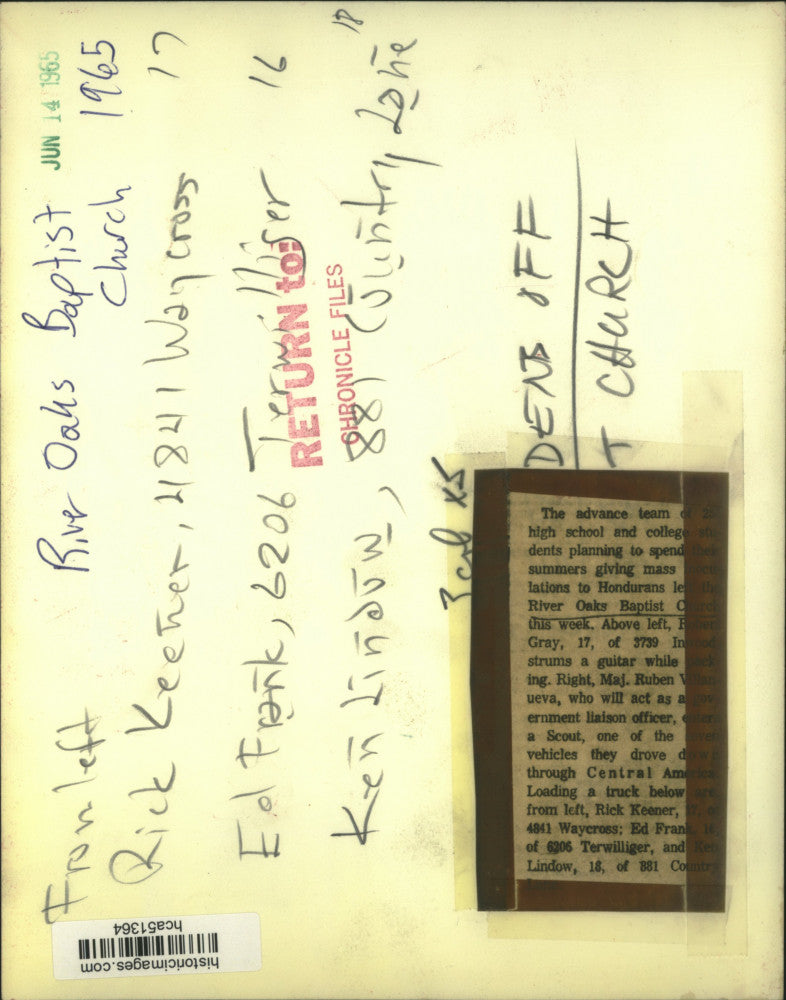 JUN 14 1965
River Oaks Baptist
Church 1965
From left
Rick Keener, 4841 Waycross 17
Ed Frank, 6206 Terwilliger 16
Ken Lindow, 881 Country Lane 18
RETURN to:
CHRONICLE FILES
3 col x5
DENTS OFF
T CHURCH
The advance team of 2
high school and college stu-
dents planning to spend their
summers giving mass inocu-
lations to Hondurans left the
River Oaks Baptist Church
this week. Above left, Robert
Gray, 17, of 3739 Inwood
strums a guitar while pack-
ing. Right, Maj. Ruben Villan-
ueva, who will act as a gov-
ernment liaison officer, enters
a Scout, one of the seven
vehicles they drove down
through Central America.
Loading a truck below are,
from left, Rick Keener, 17, of
4841 Waycross; Ed Frank, 16,
of 6206 Terwilliger, and Ken
Lindow, 18, of 881 Country
Lane.
historicimages.com
hca51364